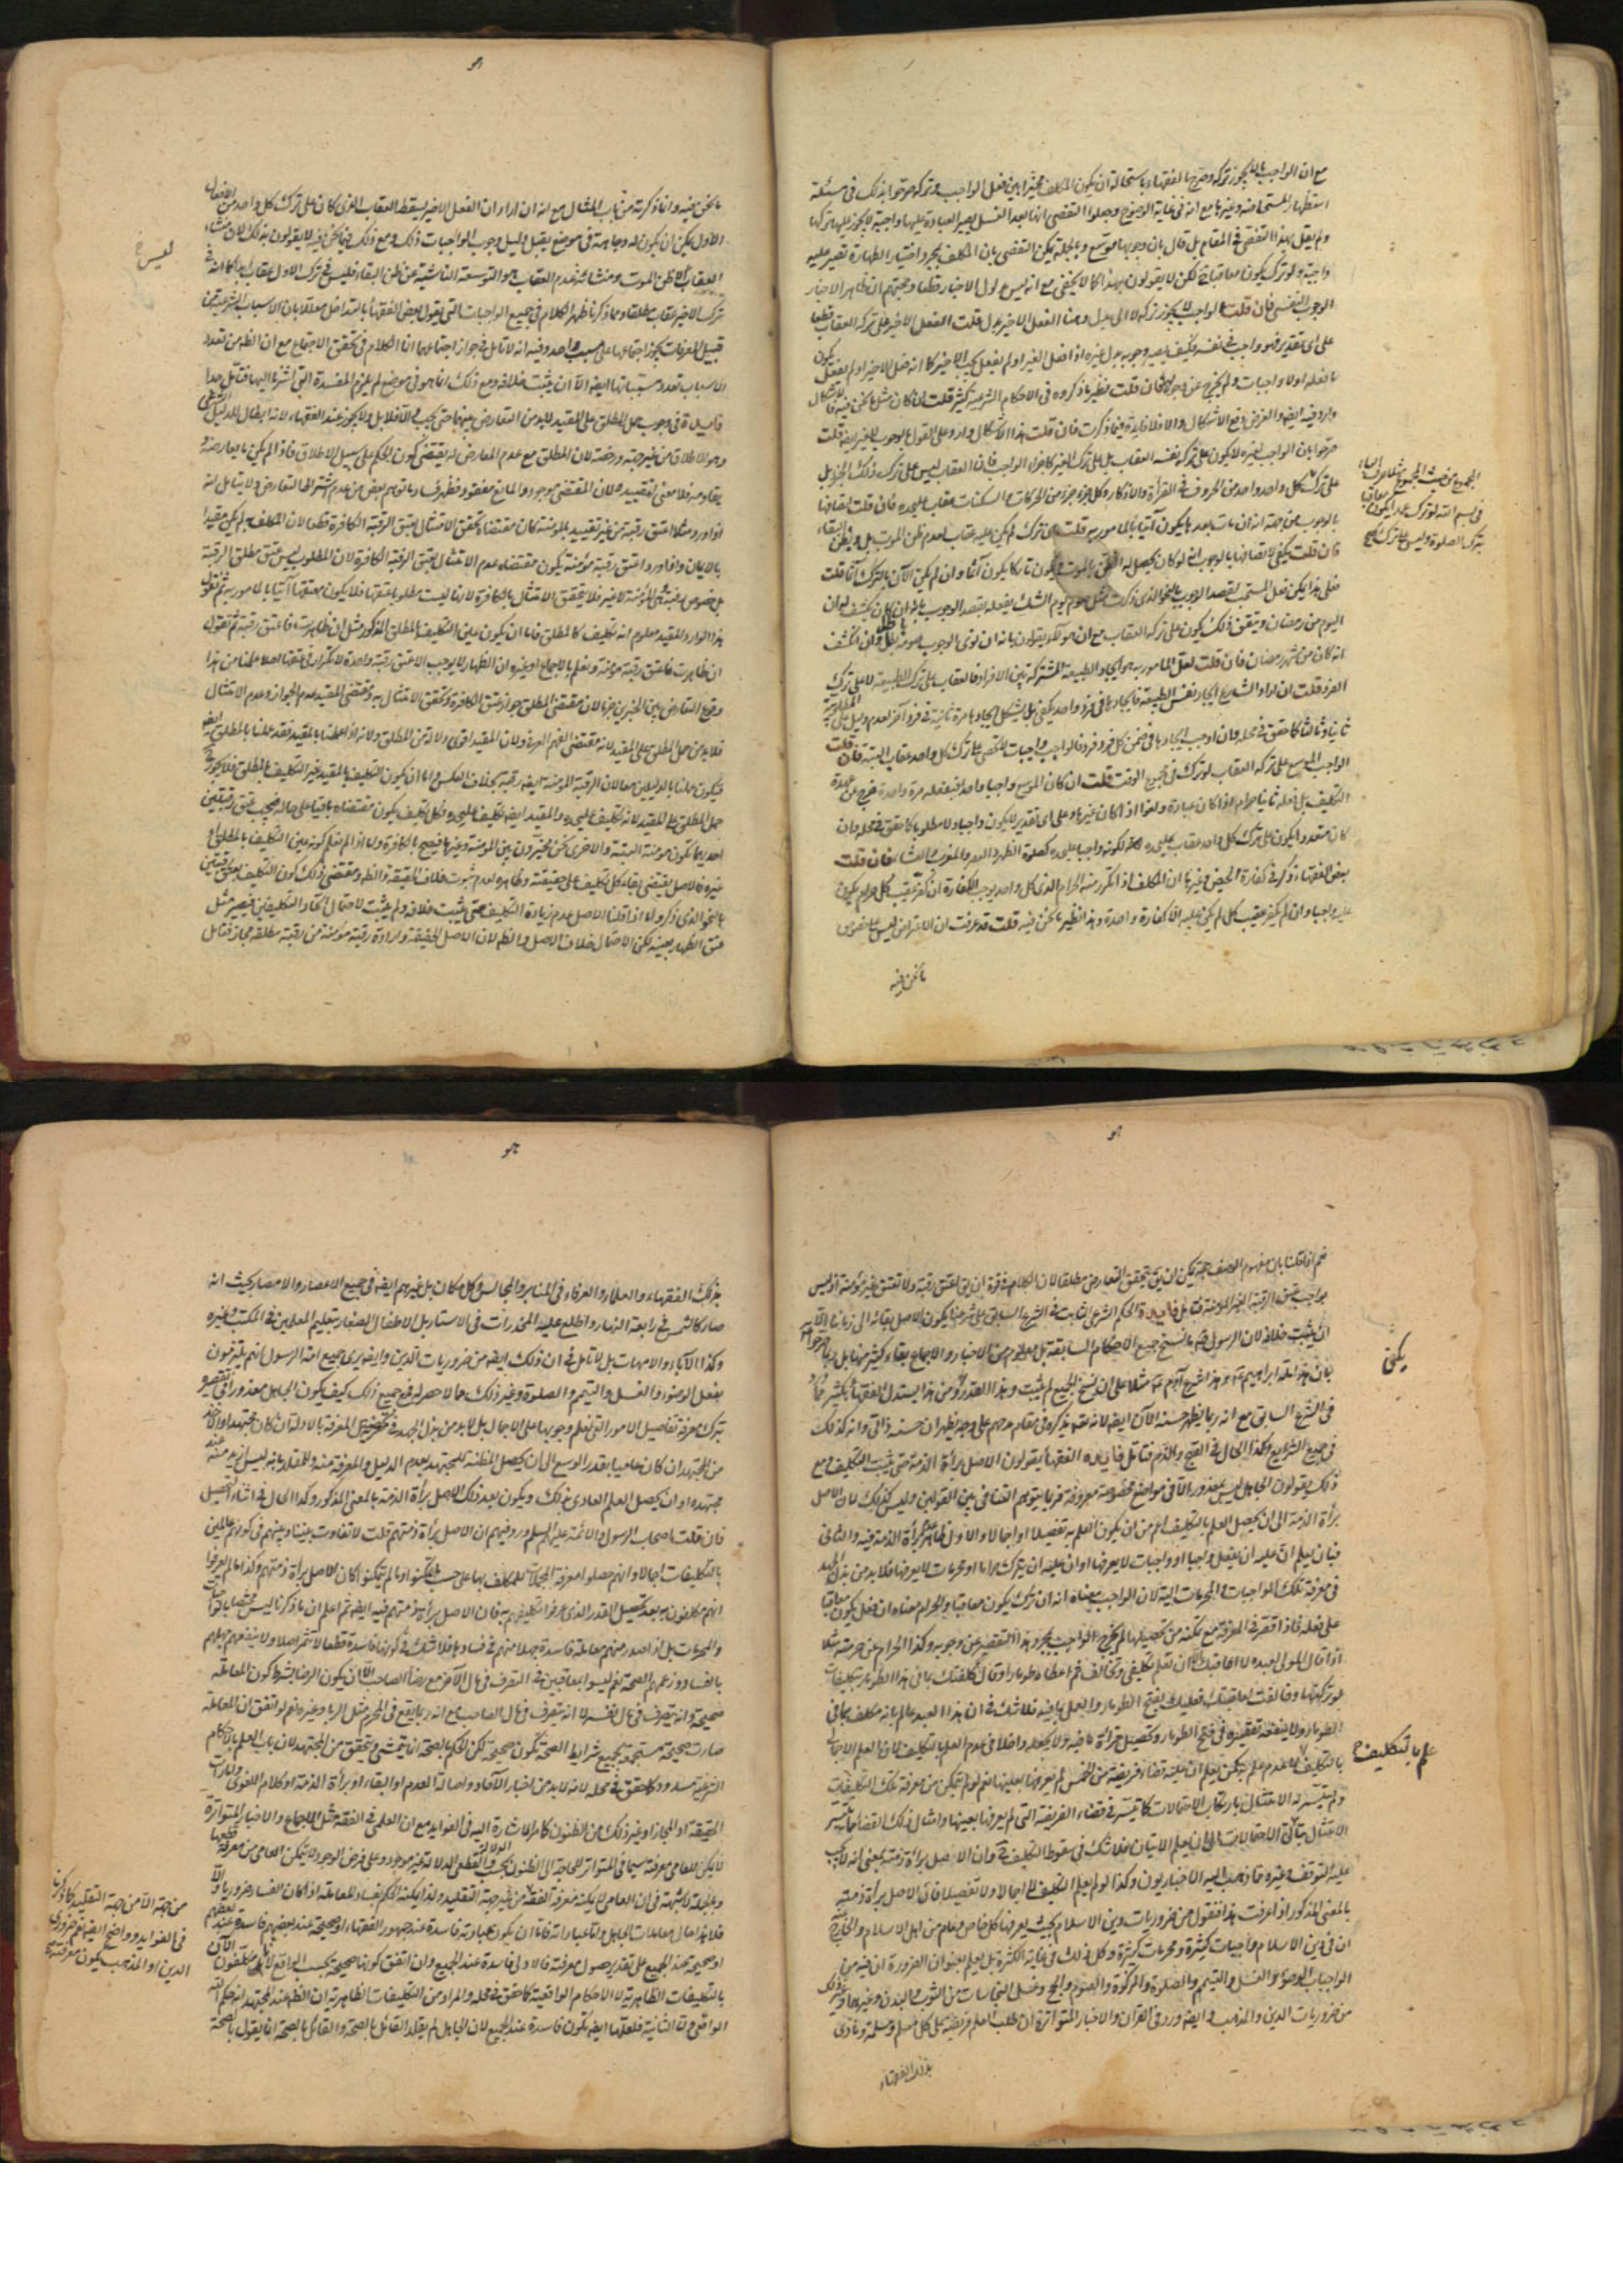 مع ان الواجب ما لا يجوز تركه وصرح الفقهاء باستحالة ان يكون المكلف مخيرا بين فعل الواجب وتركه صرحوا بذلك في مسئلة
استظهار المستحاضة وغيرها مع انه في غاية الوضوح وجعلوا التفصى انها بعد الغسل يصير العبادة عليها واجبة لا يجوز عليها تركها
ولم يقل بهذا التفصى في المقام بل قال بان وجوبها موسع وبالجملة يمكن التفصى بان المكلف بمجرد اختيار الطهارة تصير عليه
واجبة ولو ترك يكون معاقبا لكن لا يقولون بهذا كما لا يخفى مع انه ليس مدلول الاخبار قطعا وحجتهم ان ظاهر الاخبار
الوجوب النفسى فان قلت الواجب لا يجوز تركه لا الى بدل وهنا الفعل الاخير بدل قلت الفعل الاخير على تركه العقاب قطعا
على اى تقدير فهو واجب في نفسه فكيف يصير وجوبه بدل غيره اذا فعل الغير او لم يفعل يجب الاخير كما انه فعل الاخير او لم يفعل يكون
ما فعله اولا واجبات ولم يخرج عن وجوبه فان قلت نظير ما ذكروه في الاحكام الشرعية كثير قلت ان كان مثل ما نحن فيه فالاشكال
وارد فيه ايضا والغرض دفع الاشكال والا فلا فايدة فيما ذكرت فان قلت هذا الاشكال وارد على القول بالوجوب للغير ايضا قلت
صرحوا بان الواجب لغيره لا يكون على تركه نفسه العقاب بل على ترك الغير كاجزاء الواجب فان العقاب ليس على ترك ذلك الجزء بل
على ترك كل واحد واحد من الحروف في القراءة والاذكار وكل جزء جزء من الحركات والسكنات عقاب عليحده فان قلت اتصافها
بالوجوب من جهة انه ان مات بعدها يكون آتيا بالمأمور به قلت من ترك لم يكن عليه عقاب لعدم ظن الموت بل وظن البقاء
فان قلت يكفى لاتصافها بالوجوب انه لو كان يحصل له الظن بالموت فيكون تاركا يكون آثما وان لم يكن الآن بالترك آثما قلت
فعلى هذا يمكن فعل المستحب بقصد الوجوب بالنحو الذى ذكرت مثل صوم يوم الشك يفعله بقصد الوجوب بانه ان كان يكشف كون
اليوم من رمضان ويتفق ذلك يكون على تركه العقاب مع ان هؤلاء يقولون بانه ان نوى الوجوب صومه باطل وان انكشف
انه كان من شهر رمضان فان قلت لعل المأمور به هو ايجاد الطبيعة المشتركة بين الافراد فالعقاب على ترك الطبيعة لا على ترك
الفرد قلت ان اراد الشارع ايجاد نفس الطبيعة فايجادها في فرد واحد يكفى بل يشكل ايجادها مرة ثانية في فرد آخر لعدم دليل على المطلوبية
ثانيا وثالثا كما حقق في محله وان اوجب ايجادها في ضمن كل فرد فرد فالواجب واجبات لا تحصى على ترك كل واحد عقاب البتة فان قلت
الواجب الموسع على تركه العقاب لو ترك في مجموع الوقت قلت ان كان الموسع واجبا واحدا فبفعله مرة واحدة خرج عن عهدة
التكليف بل فعله ثانيا حرام اذا كان عبادة ولغوا اذا كان غيرها وعلى اى تقدير لا يكون واجبا ولا مطلوبا كما حقق في محله وان
كان متعددا يكون على ترك كل واحد عقاب عليحده لكونه واجبا عليحده كصلوة الظهر والعصر والمغرب والعشاء فان قلت
بعض الفقهاء ذكر في كفارة الحيض وغيرها ان المكلف اذا تكرر منه الحرام الذى كل واحد يوجب الكفارة ان كفر عقيب كل حرام يكون
عليه واجبا وان لم يكفر عقيب كل لم يكن عليه الا كفارة واحدة وهذا نظير ما نحن فيه قلت قد عرفت ان الاعتراض ليس على خصوص
ما نحن فيه
المجموع من حيث المجموع مثلا حرف الباء
في بسم الله لو ترك عمدا يكون معاقبا
بترك الصلوة وليس على ترك كل
ما نحن فيه وانما ذكرته من باب المثال مع انه ان اراد ان الفعل الاخير يسقط العقاب الذى كان على ترك كل واحد من الافعال
الاول يمكن ان يكون له وجاهة في موضع يقبل دليل وجوب الواجبات ذلك ومع ذلك فيما نحن فيه لا يقولون بذلك لان منشاء
العقاب الا ظن الموت ومنشاء عدم العقاب هو التوسعة الناشية عن ظن البقاء فليس في ترك الاول عقاب ابدا كما انه في
ترك الاخير عقاب مطلقا ومما ذكرنا ظهر الكلام في جميع الواجبات التى يقول بعض الفقهاء بالتداخل معللا بان الاسباب الشرعية من
قبيل المعرفات يجوز اجتماعها على مسبب واحد وفيه انه لا تامل في جواز اجتماعها انما الكلام في تحقق الاجتماع مع ان الظاهر من تعدد
الاسباب تعدد مسبباتها ايضا الا ان يثبت خلافه ومع ذلك انما هو في موضع لم يلزم المفسدة التى اشرنا اليها فتامل جدا
فايدة في وجوب حمل المطلق على المقيد لا بد من التعارض بينهما حتى يجب والا فلا بل ولا يجوز عند الفقهاء لانه ابطال للدليل الشرعى
وهو الاطلاق من غير جهة ورخصة لان المطلق مع عدم المعارض له يقتضى كون الحكم على سبيل الاطلاق فاذا لم يكن ما يعارضه و
يقاومه فلا معنى لتقييده لان المقتضى موجود والمانع مفقود فظهر فساد ما توهم بعض من عدم اشتراط التعارض ولا يتامل انه
اذا ورد مثلا اعتق رقبة من غير تقييد بالمؤمنة كان مقتضاه تحقق الامتثال بعتق الرقبة الكافرة قطعا لان المكلف به لم يكن مقيدا
بالايمان واذا ورد اعتق رقبة مؤمنة يكون مقتضاه عدم الامتثال بعتق الرقبة الكافرة لان المطلوب ليس عتق مطلق الرقبة
بل خصوص رقبة مؤمنة لا غير فلا يتحقق الامتثال بالكافرة لانها ليست مطلوبا عتقها فلا يكون معتقها آتيا بالمأمور به ثم نقول
هذا الوارد المقيد معلوم انه تكليف كالمطلق فاما ان يكون عين التكليف بالمطلق المذكور مثل ان ظاهرت فاعتق رقبة ثم نقول
ان ظاهرت فاعتق رقبة مؤمنة ونعلم بالاجماع او غيره ان الظهار لا يوجب الا عتق رقبة واحدة لا تكرار في عتقها اصلا علمنا من هذا
وقوع التعارض بين الخبرين جزما لان مقتضى المطلق جواز عتق الكافرة وتحقق الامتثال به ومقتضى المقيد عدم الجواز وعدم الامتثال
فلا بد من حمل المطلق على المقيد لانه مقتضى الفهم العرفى ولان المقيد اقوى دلالة من المطلق ولانه اذا عملنا بالمقيد فقد عملنا بالمطلق ايضا
فيكون عملنا بالدليلين معا لان الرقبة المؤمنة ايضا رقبة بخلاف العكس واما ان يكون التكليف بالمقيد غير التكليف بالمطلق فلا يجوز
حمل المطلق على المقيد لانه تكليف عليحده والمقيد ايضا تكليف عليحده وكل تكليف يكون مقتضاه باقيا على حاله فيجب عتق رقبتين
احديهما تكون مؤمنة البتة والاخرى نحن مخيرون بين المؤمنة وغيرها فيصح بالكافرة واما اذا لم نعلم كونه عين التكليف بالمطلق او
غيره فالاصل يقتضى بقاء كل تكليف على حقيقته وظاهره لعدم ثبوت خلاف الحقيقة والظاهر ومقتضى ذلك كون التكليف بعتق رقبتين
بالنحو الذى ذكر واما اذا قلنا الاصل عدم زيادة التكليف حتى يثبت خلافه ولم يثبت لاحتمال اتحاد التكليفين فيصير مثل
عتق الظهار بعينه لكن الاحتمال خلاف الاصل والظاهر لان الاصل الحقيقة وارادة رقبة مؤمنة من رقبة مطلقة مجاز فتامل
ليس خ
نعم اذا قلنا بان مفهوم الوصف حجة يمكن ان يقال يتحقق التعارض مطلقا لان الكلام في قوة ان يقال اعتق رقبة ولا تعتق غير مؤمنة او ليس
بواجب عتق الرقبة الغير المؤمنة فتامل فايدة الحكم الشرعى الثابت في الشرع السابق على شرعنا يكون الاصل بقائه الى زماننا الا
ان يثبت خلافه لان الرسول ص ما نسخ جميع الاحكام السابقة بل معلوم من الاخبار والاجماع بقاء كثير منها بل ربما صرحوا
بان هذا ملة ابراهيم ع وهذا شرع آدم ع مثلا على ان نسخ الجميع لم يثبت وبهذا القدر ومن هذا يستدل الفقهاء بكثير مما ورد
في الشرع السابق مع انه ربما يظهر حسنه الآن ايضا لانه تعالى يذكره في مقام مدحهم على وجه يظهر ان حسنه ذاتى وانه كذلك
في جميع الشرايع وكذا الحال في القبح والذم فتامل فايدة الفقهاء يقولون الاصل برائة الذمة حتى يثبت التكليف ومع
ذلك يقولون الجاهل ليس بمعذور الا في مواضع مخصوصة معروفة فربما يتوهم التنافى بين القولين وليس كذلك لان الاصل
برائة الذمة الى ان يحصل العلم بالتكليف اعم من ان يكون العلم به تفصيلا او اجمالا والاول ظاهر برائة الذمة فيه والثانى
فبان يعلم ان عليه ان يفعل واجبا او واجبات لا يعرفها او ان عليه ان يترك حراما او محرمات لا يعرفها فلا بد من بذل الجهد
في معرفة تلك الواجبات والمحرمات البتة لان الواجب معناه انه ان ترك يكون معاقبا والحرام معناه ان فعل يكون معاقبا
على فعله فاذا قصر في المعرفة مع تمكنه من تحصيلها لم يخرج الواجب بمجرد هذا التقصير عن وجوبه وكذا الحرام عن حرمته مثلا
اذا قال المولى لعبده لا اعاقبك الا ان تعلم تكليفى وتخالف ثم اعطاه طومارا وقال كلفتك بما في هذا الطومار بتكليفات
لو تركتها وخالفت اعاقبتك فعليك بفتح الطومار والعمل بما فيه فلا شك في ان هذا العبد عالم بانه مكلف بما في
الطومار ولا ينفعه تقصيره في فتح الطومار وتحصيل قرائة ما فيه ولا يجعله داخلا في عدم العلم بالتكليف لان العلم الاجمالى
بالتكليف لا عدم علم به كمن يعلم ان عليه قضاء فريضة من الخمس لم يعرفها بعينها نعم لو لم يتمكن من معرفة تلك التكليفات
ولم يتيسر له الامتثال بارتكاب الاحتمالات كما تيسر في قضاء الفريضة التى لم يعرفها بعينها وامثال ذلك القضاء مما تيسر
الامتثال بتأتى الاحتمالات الى ان يعلم الاتيان فلا شك في سقوط التكليف وان الاصل برائة ذمته بمعنى انه لا يجب
عليه التوقف وغيره مما ذهب اليه الاخباريون وكذا لو لم يعلم التكليف لا اجمالا ولا تفصيلا فان الاصل برائة ذمته
بالمعنى المذكور اذا عرفت هذا فنقول من ضروريات دين الاسلام بحيث يعرفها كل خاص وعام من اهل الاسلام والخارج
ان في دين الاسلام واجبات كثيرة ومحرمات كثيرة وكل ذلك في غاية الكثرة بل يعلم بعنوان الضرورة ان فيه من
الواجبات الوضوء والغسل والتيمم والصلوة والزكوة والصوم والحج وغسل النجاسات من الثوب والبدن وغيرهما وغير ذلك
من ضروريات الدين والمذهب وايضا ورد في القرآن والاخبار المتواترة ان طلب العلم فريضة على كل مسلم ومسلمة ونادى
بذلك الفقهاء
يكن خ
علم بالتكليف خ
بذلك الفقهاء والعلماء والعرفاء في المنابر والمجالس وكل مكان بل غيرهم ايضا في جميع الاعصار والامصار بحيث انه
صار كالشمس في رابعة النهار واطلع عليه المخدرات في الاستار بل الاطفال الصغار بتعليم المعلمين في المكتب وغيره
وكذا الآباء والامهات بل لا تامل في ان ذلك ايضا من ضروريات الدين وايضا يرى جميع امة الرسول انهم يلتزمون
بفعل الوضوء والغسل والتيمم والصلوة وغير ذلك مما لا حصر له فمع جميع ذلك كيف يكون الجاهل معذورا في تقصيره
بترك معرفة تفاصيل الامور التى يعلم وجوبها على الاجمال بل لا بد من بذل الجهد في تحصيل المعرفة بالادلة ان كان مجتهدا والاخذ
من المجتهد ان كان عاميا بقدر الوسع الى ان يحصل المظنة للمجتهد بعدم الدليل والمعرفة منه وللمقلد بانه ليس ازيد منه عند
مجتهده او ان يحصل العلم العادى بذلك ويكون بعد ذلك الاصل برائة الذمة بالمعنى المذكور وكذا الحال في اثناء التحصيل
فان قلت اصحاب الرسول والائمة عليهم السلم ورد فيهم ان الاصل برائة ذمتهم قلت لا تفاوت بيننا وبينهم في كونهم عالمين
بالتكليفات اجمالا وانهم حصلوا معرفة المجملات للمكلف بها على حسب ما تمكنوا وما لم يتمكنوا كان الاصل برائة ذمتهم وكذا ما لم يعرفوا
انهم مكلفون به بعد تحصيل القدر الذى عرفوا تكليفهم به فان الاصل برائة ذمتهم فيه ايضا ثم اعلم ان ما ذكرنا ليس مختصا بالواجبات
والمحرمات بل اذا صدر منهم معاملة فاسدة جهلا منهم في فسادها فلا شك في كونها فاسدة قطعا لا تثمر اصلا ولا ينفعهم جهلهم
بالفساد وزعمهم الصحة نعم ليسوا بمعاقبين في التصرف في مال الآخر مع رضاء الصاحب الا ان يكون الرضا بشرط كون المعاملة
صحيحة وانه يتصرف في مال نفسه لا انه يتصرف في مال الصاحب مع انه ربما يقع في المحرم مثل الربا وغيره نعم لو اتفق ان المعاملة
صارت صحيحة مستجمعة لجميع شرايط الصحة تكون صحيحة لكن الحكم بالصحة انما يتمشى ويتحقق من المجتهد لان باب العلم بالاحكام
الشرعية مسدود كما حقق في محله لانه لا بد من اخبار الآحاد واصالة العدم او البقاء او برائة الذمة او كلام اللغوى وامارات
الحقيقة او المجاز او غير ذلك من الظنون كما مر الاشارة اليه في الفوايد مع ان العلمى في الفقه مثل الاجماع والاخبار المتواترة
لا يمكن للعامى معرفته سيما في المتواتر للحاجة الى الظنون بحسب الدلالة والقطعى الدلالة غير موجود وعلى فرض الوجود لا يتمكن العامى من معرفة قطعها
وبالجملة لا شبهة في ان العامى لا يمكنه معرفة الفقه من غير جهة التقليد ولذا يمكنه الحكم بفساد المعاملة اذا كان الفساد ضروريا والا
فلا هذا حال معاملات الجاهل واما عباداته فاما ان يكون عبادته فاسدة عند جمهور الفقهاء او صحيحة عند بعضهم فاسدة عند بعضهم
او صحيحة عند الجميع على تقدير حصول معرفته فالاولى فاسدة عند الجميع وان اتفق كونها صحيحة بحسب الواقع لانا مكلفون الآن
بالتكليفات الظاهرية لا الاحكام الواقعية كما حقق في محله والمراد من التكليفات الظاهرية ان الظاهر عند المجتهد انه حكم الله
الواقعى واما الثانية فلعلها ايضا تكون فاسدة عند الجميع لان الجاهل لم يقلد القائل بالصحة والقائل بالصحة انما يقول بالصحة
من جهة الا من جهة التقليد كما ذكرنا
في الفوايد وواضح ايضا نعم ضرورى
الدين او المذهب يكون معرفته